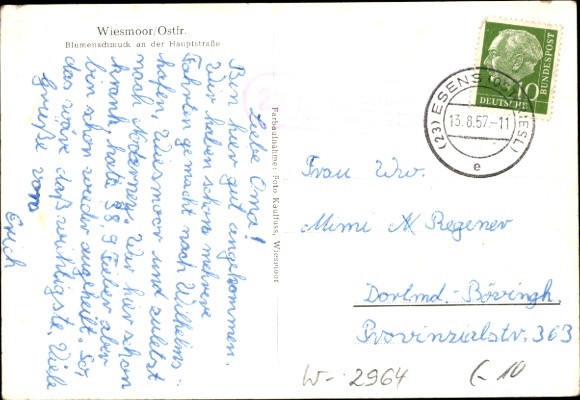 Wiesmoor/Ostfr.
Blumenschmuck an der Hauptstraße
Liebe Oma!
Bin hier gut angekommen.
Wir haben schon mehrere
Fahrten gemacht nach Wilhelms-
hafen, Wiesmoor und zuletzt
nach Norderney. War hier schon
krank, hatte 38,9 Fieber aber
bin schon wieder aufgeheilt. So,
das wäre daß wichtigste. Viele
Grüße vom
Erich
Farbaufnahme: Foto Kaufuss, Wiesmoor
10
DEUTSCHE
BUNDESPOST
(23) ESENS (OSTFRIESL)
13.8.57.-11
e
Frau Ww.
Mimi Regener
Dortmd.-Bövingh.
Provinzialstr. 363
W- 2964
(-10